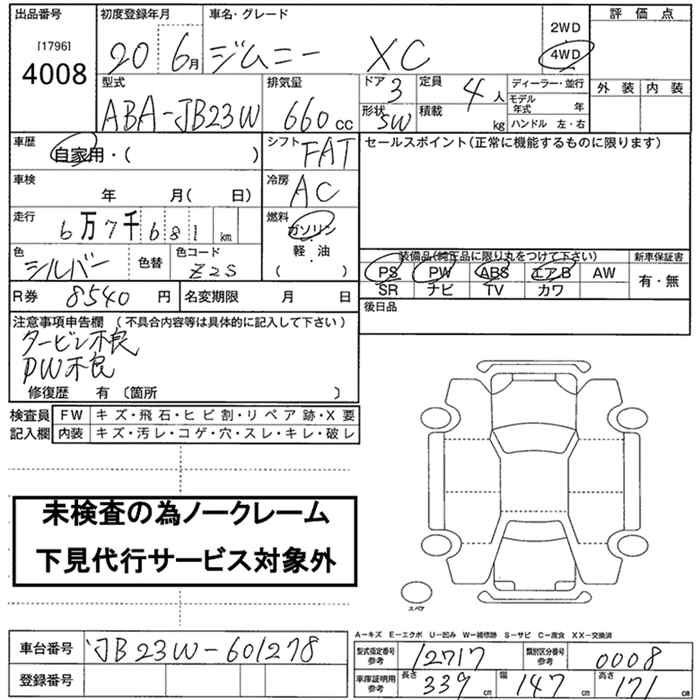 出品番号 初度登録年月 車名・グレード 評価点
[1796]
4008
20 6月 ジムニー XC 2WD
4WD
型式 排気量 ドア 定員 ディーラー・並行 外装 内装
ABA-JB23W 660cc 3 4人 モデル年式 年
形状 積載 SW kg ハンドル 左・右
車歴 シフト セールスポイント(正常に機能するものに限ります)
自家用・( ) FAT
車検 冷房
年 月( 日) AC
走行 燃料
6万7千681km ガソリン
軽・油
( )
色 色替 色コード 装備品(純正品に限り丸をつけて下さい) 新車保証書
シルバー Z2S PS PW ABS エアB AW 有・無
SR ナビ TV カワ
R券 8540円 名変期限 月 日 後日品
注意事項申告欄 (不具合内容等は具体的に記入して下さい)
タービン不良
PW不良
修復歴 有 (箇所 )
検査員 FW キズ・飛石・ヒビ割・リペア跡・X要
記入欄 内装 キズ・汚レ・コゲ・穴・スレ・キレ・破レ
未検査の為ノークレーム
下見代行サービス対象外
スペア
A-キズ E-エクボ U-凹み W-補修跡 S-サビ C-腐食 XX-交換済
車台番号 JB23W-601278 型式指定番号 参考 12717 類別区分番号 参考 0008
登録番号 車庫証明用 参考 長さ 339cm 幅 147cm 高さ 171cm